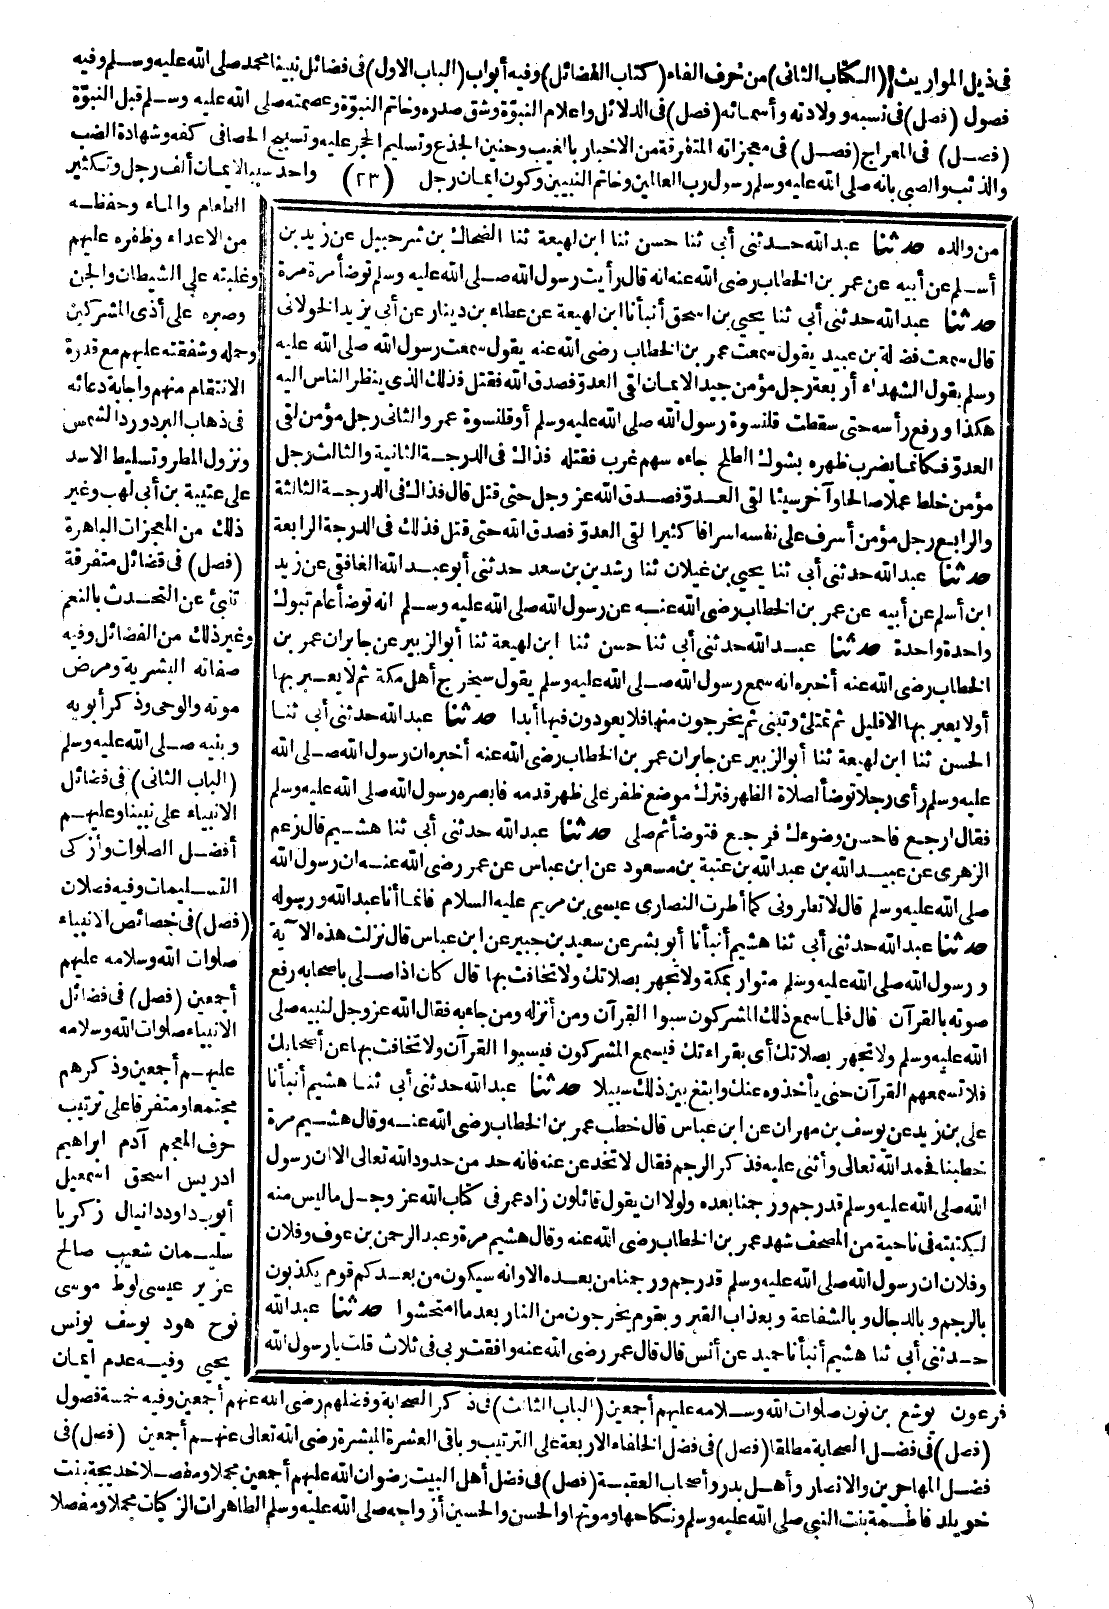 فى ذيل المواريث (الكتاب الثانى) من حرف الفاء (كتاب الفضائل) وفيه أبواب (الباب الاول) فى فضائل نبينا محمد صلى الله عليه وسلم وفيه
فصول (فصل) فى نسبه وولادته وأسمائه (فصل) فى الدلائل واعلام النبوّة وشق صدره وخاتم النبوّة وعصمته صلى الله عليه وسلم قبل النبوّة
(فصل) فى المعراج (فصل) فى معجزاته المتفرقة من الاخبار بالغيب وحنين الجذع وتسليم الحجر عليه وتسبيح الحصا فى كفه وشهادة الضب
والذئب والصبى بانه صلى الله عليه وسلم رسول رب العالمين وخاتم النبيين وكون ايمان رجل (٢٣) واحد سببا لايمان ألف رجل وتكثير
الطعام والماء وحفظه
من الاعداء وظفره عليهم
وغلبته على الشيطان والجن
وصبره على أذى المشركين
وحلمه وشفقته عليهم مع قدرة
الانتقام منهم واجابة دعائه
فى ذهاب البرد ورد الشمس
ونزول المطر وتسليط الاسد
على عتيبة بن أبى لهب وغير
ذلك من المعجزات الباهرة
(فصل) فى فضائل متفرقة
تنبئ عن التحدث بالنعم
وغير ذلك من الفضائل وفيه
صفاته البشرية ومرض
موته والوحى وذكر أبويه
وبنيه صلى الله عليه وسلم
(الباب الثانى) فى فضائل
الانبياء على نبينا وعليهم
أفضل الصلوات وأزكى
التسليمات وفيه فصلان
(فصل) فى خصائص الانبياء
صلوات الله وسلامه عليهم
أجمعين (فصل) فى فضائل
الانبياء صلوات الله وسلامه
عليهم أجمعين وذكرهم
مجتمعا ومتفرقا على ترتيب
حرف المعجم آدم ابراهيم
ادريس اسحق اسمعيل
أيوب داود دانيال زكريا
سليمان شعيب صالح
عزير عيسى لوط موسى
نوح هود يوسف يونس
يحيى وفيه عدم ايمان
من والده حدثنا عبد الله حدثنى أبى ثنا حسن ثنا ابن لهيعة ثنا الضحاك بن شرحبيل عن زيد بن
أسلم عن أبيه عن عمر بن الخطاب رضى الله عنه انه قال رأيت رسول الله صلى الله عليه وسلم توضأ مرة مرة
حدثنا عبد الله حدثنى أبى ثنا يحيى بن اسحق أنبأنا ابن لهيعة عن عطاء بن دينار عن أبى يزيد الخولانى
قال سمعت فضالة بن عبيد يقول سمعت عمر بن الخطاب رضى الله عنه يقول سمعت رسول الله صلى الله عليه
وسلم يقول الشهداء أربعة رجل مؤمن جيد الايمان لقى العدوّ فصدق الله فقتل فذلك الذى ينظر الناس اليه
هكذا ورفع رأسه حتى سقطت قلنسوة رسول الله صلى الله عليه وسلم أو قلنسوة عمر والثانى رجل مؤمن لقى
العدوّ فكانما يضرب ظهره بشوك الطلح جاءه سهم غرب فقتله فذاك فى الدرجة الثانية والثالث رجل
مؤمن خلط عملا صالحا وآخر سيئا لقى العدوّ فصدق الله عز وجل حتى قتل قال فذاك فى الدرجة الثالثة
والرابع رجل مؤمن أسرف على نفسه اسرافا كثيرا لقى العدوّ فصدق الله حتى قتل فذلك فى الدرجة الرابعة
حدثنا عبد الله حدثنى أبى ثنا يحيى بن غيلان ثنا رشدين بن سعد حدثنى أبو عبد الله الغافقى عن زيد
ابن أسلم عن أبيه عن عمر بن الخطاب رضى الله عنه عن رسول الله صلى الله عليه وسلم انه توضأ عام تبوك
واحدة واحدة حدثنا عبد الله حدثنى أبى ثنا حسن ثنا ابن لهيعة ثنا أبو الزبير عن جابر ان عمر بن
الخطاب رضى الله عنه أخبره انه سمع رسول الله صلى الله عليه وسلم يقول سيخرج أهل مكة ثم لا يعبر بها
أو لا يعبر بها الا قليل ثم تمتلئ وتبنى ثم يخرجون منها فلا يعودون فيها أبدا حدثنا عبد الله حدثنى أبى ثنا
الحسن ثنا ابن لهيعة ثنا أبو الزبير عن جابر ان عمر بن الخطاب رضى الله عنه أخبره ان رسول الله صلى الله
عليه وسلم رأى رجلا توضأ لصلاة الظهر فترك موضع ظفر على ظهر قدمه فابصره رسول الله صلى الله عليه وسلم
فقال ارجع فاحسن وضوءك فرجع فتوضأ ثم صلى حدثنا عبد الله حدثنى أبى ثنا هشيم قال زعم
الزهرى عن عبيد الله بن عبد الله بن عتبة بن مسعود عن ابن عباس عن عمر رضى الله عنه ان رسول الله
صلى الله عليه وسلم قال لا تطرونى كما أطرت النصارى عيسى بن مريم عليه السلام فانما أنا عبد الله ورسوله
حدثنا عبد الله حدثنى أبى ثنا هشيم أنبأنا أبو بشر عن سعيد بن جبير عن ابن عباس قال نزلت هذه الآية
ورسول الله صلى الله عليه وسلم متوار بمكة ولا تجهر بصلاتك ولا تخافت بها قال كان اذا صلى باصحابه رفع
صوته بالقرآن قال فلما سمع ذلك المشركون سبوا القرآن ومن أنزله ومن جاء به فقال الله عز وجل لنبيه صلى
الله عليه وسلم ولا تجهر بصلاتك أى بقراءتك فيسمع المشركون فيسبوا القرآن ولا تخافت بها عن أصحابك
فلا تسمعهم القرآن حتى يأخذوه عنك وابتغ بين ذلك سبيلا حدثنا عبد الله حدثنى أبى ثنا هشيم أنبأنا
على بن زيد عن يوسف بن مهران عن ابن عباس قال خطب عمر بن الخطاب رضى الله عنه وقال هشيم مرة
خطبنا فحمد الله تعالى وأثنى عليه فذكر الرجم فقال لا تخدعن عنه فانه حد من حدود الله تعالى الا ان رسول
الله صلى الله عليه وسلم قد رجم ورجمنا بعده ولولا ان يقول قائلون زاد عمر فى كتاب الله عز وجل ما ليس منه
لكتبته فى ناحية من المصحف شهد عمر بن الخطاب رضى الله عنه وقال هشيم مرة وعبد الرحمن بن عوف وفلان
وفلان ان رسول الله صلى الله عليه وسلم قد رجم ورجمنا من بعده الا وانه سيكون من بعدكم قوم يكذبون
بالرجم وبالدجال وبالشفاعة وبعذاب القبر وبقوم يخرجون من النار بعد ما امتحشوا حدثنا عبد الله
حدثنى أبى ثنا هشيم أنبأنا حميد عن أنس قال قال عمر رضى الله عنه وافقت ربى فى ثلاث قلت يا رسول الله
فرعون يوشع بن نون صلوات الله وسلامه عليهم أجمعين (الباب الثالث) فى ذكر الصحابة وفضلهم رضى الله عنهم أجمعين وفيه خمسة فصول
(فصل) فى فضل الصحابة مطلقا (فصل) فى فضل الخلفاء الاربعة على الترتيب وباقى العشرة المبشرة رضى الله تعالى عنهم أجمعين (فصل) فى
فضل المهاجرين والانصار وأهل بدر وأصحاب العقبة (فصل) فى فضل أهل البيت رضوان الله عليهم أجمعين مجملا ومفصلا خديجة بنت
خويلد فاطمة بنت النبى صلى الله عليه وسلم ونكاحها وموتها والحسن والحسين أزواجه صلى الله عليه وسلم الطاهرات الزكيات مجملا ومفصلا